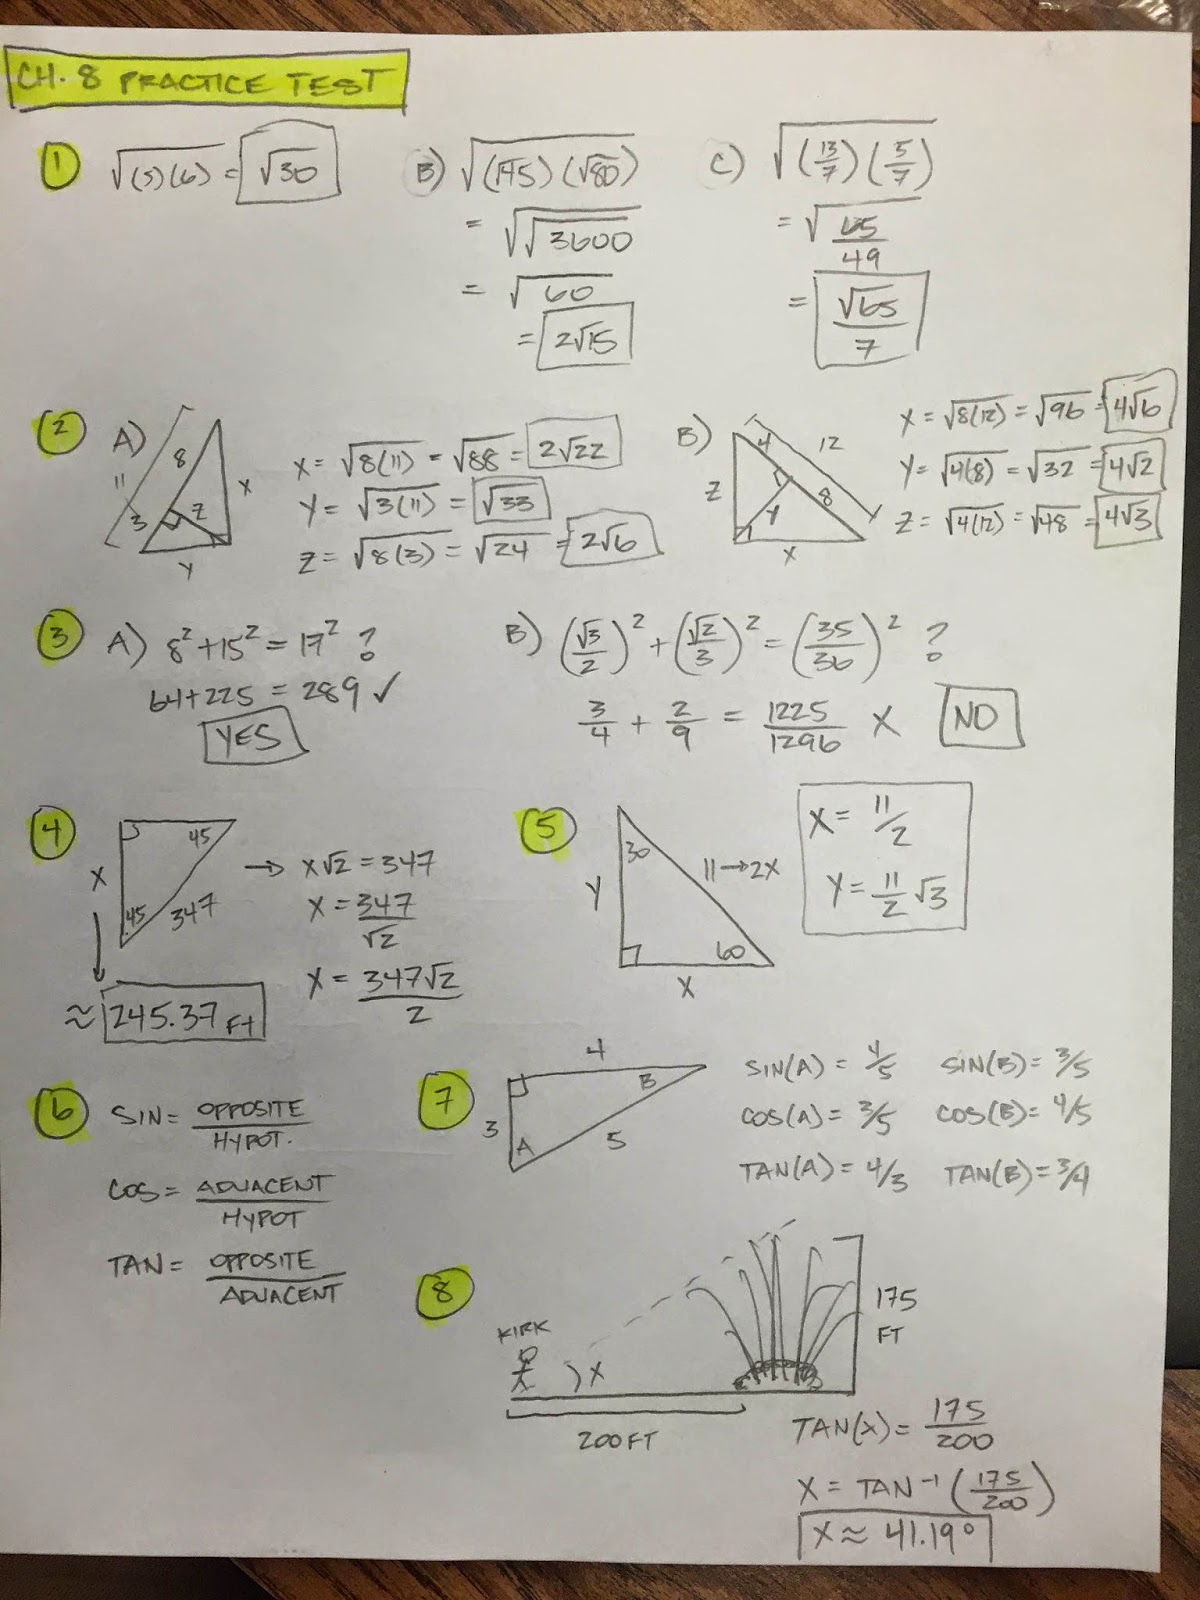 CH. 8 PRACTICE TEST
1 √(5)(6) = √30
B) √(√45)(√80)
= √√3600
= √60
= 2√15
C) √(13/7)(5/7)
= √65/49
= √65/7
2 A) 11 8 3 Z X Y
X = √8(11) = √88 = 2√22
Y = √3(11) = √33
Z = √8(3) = √24 = 2√6
B) 4 12 8 Z Y X
X = √8(12) = √96 = 4√6
Y = √4(8) = √32 = 4√2
Z = √4(12) = √48 = 4√3
3 A) 8² + 15² = 17² ?
64 + 225 = 289 ✓
YES
B) (√3/2)² + (√2/3)² = (35/36)² ?
3/4 + 2/9 = 1225/1296 X NO
4 X 45 45 347
→ X√2 = 347
X = 347/√2
X = 347√2/2
≈ 245.37 FT
5 30 Y 11→2X 60 X
X = 11/2
Y = 11/2 √3
6 SIN = OPPOSITE/HYPOT.
COS = ADJACENT/HYPOT
TAN = OPPOSITE/ADJACENT
7 4 B 3 A 5
SIN(A) = 4/5 SIN(B) = 3/5
COS(A) = 3/5 COS(B) = 4/5
TAN(A) = 4/3 TAN(B) = 3/4
8 KIRK X 200 FT
175
FT
TAN(X) = 175/200
X = TAN⁻¹(175/200)
X ≈ 41.19°